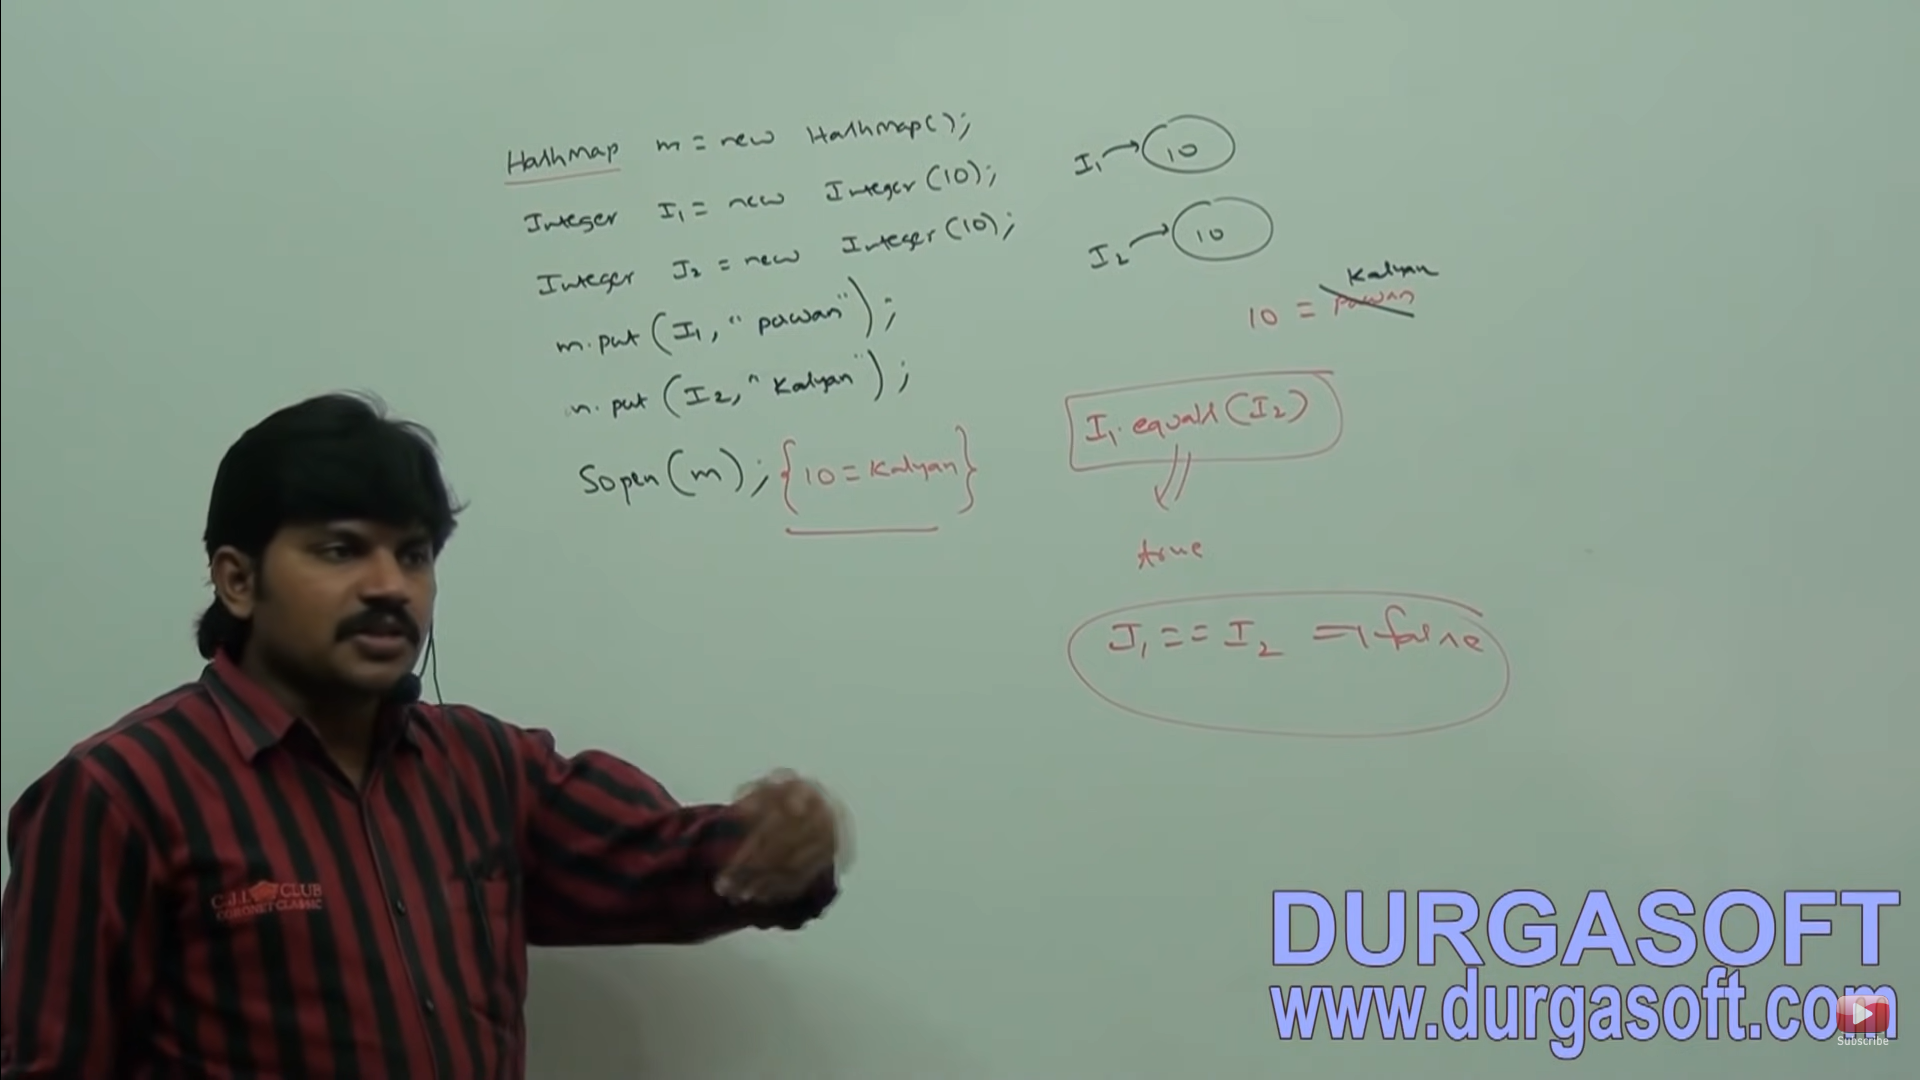 HashMap m = new HashMap();
Integer I1 = new Integer(10);
Integer I2 = new Integer(10);
m.put(I1, "pawan");
m.put(I2, "Kalyan");
Sopln(m); {10=Kalyan}
I1 → 10
I2 → 10
Kalyan
10 = pawan
I1.equals(I2)
true
I1 == I2 ⇒ false
C.J.I. CLUB
CORONET CLASSIC
DURGASOFT
www.durgasoft.com
Subscribe